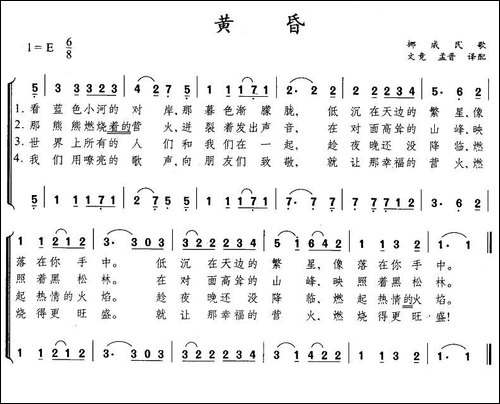 黄 昏
1=E 6/8
挪 威 民 歌
文 竞 孟 晋 译配
5 3 3 3323 5 1 1 1171 2 2 2 2234 7 7 7 5·6 2
1. 看 蓝 色 小河 的 对 岸, 那 暮 色 渐 朦 胧, 低 沉 在 天边 的 繁 星, 像
2. 那 熊 熊 燃烧 着的 营 火, 迸 裂 着 发出 声 音, 在 对 面 高耸 的 山 峰, 映
3. 世 界 上 所有 的 人 们 和 我 们 在 一 起, 趁 夜 晚 还没 降 临, 燃
4. 我 们 用 嘹亮 的 歌 声, 向 朋 友们 致 敬, 就 让 那 幸福 的 营 火, 燃
1 1212 3· 303 2 2 2 2234 5 1642 1 132 1· 1
落 在你 手 中。 低 沉 在 天边 的 繁 星, 像 落 在你 手 中。
照 着黑 松 林。 在 对 面 高耸 的 山 峰, 映 照 着黑 松 林。
起 热情 的 火 焰。 趁 夜 晚 还没 降 临, 燃 起 热情 的 火 焰。
烧 得更 旺 盛。 就 让 那 幸福 的 营 火, 燃 烧 得更 旺 盛!